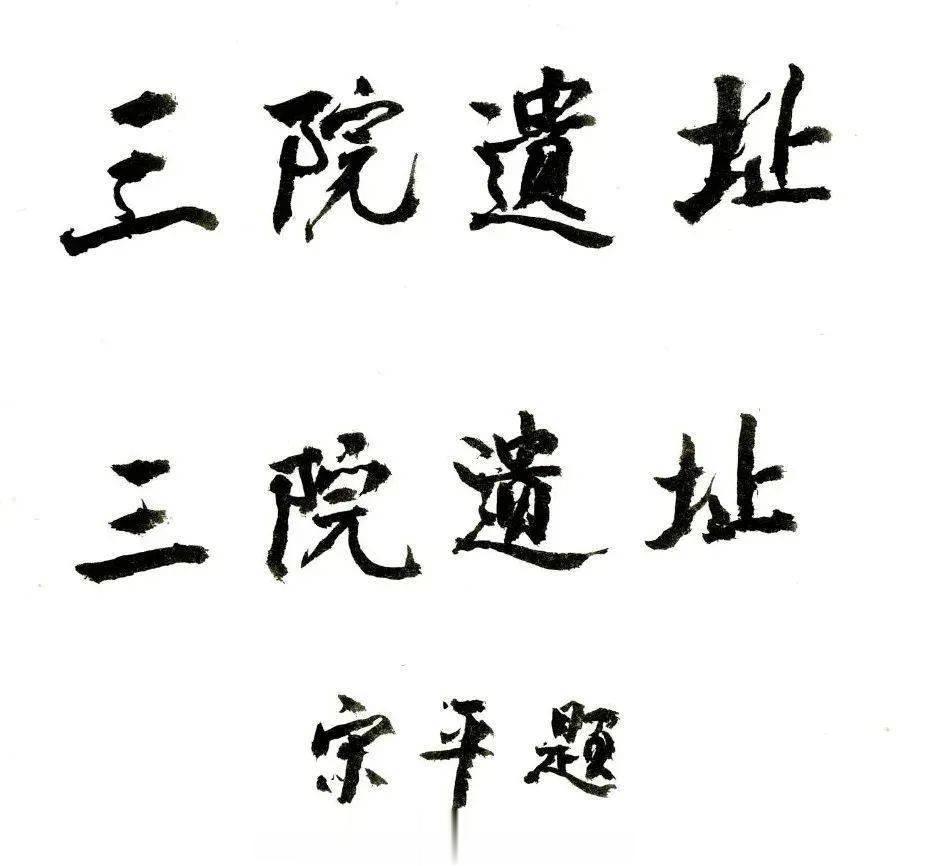 三院遺址
三院遺址
宋平題